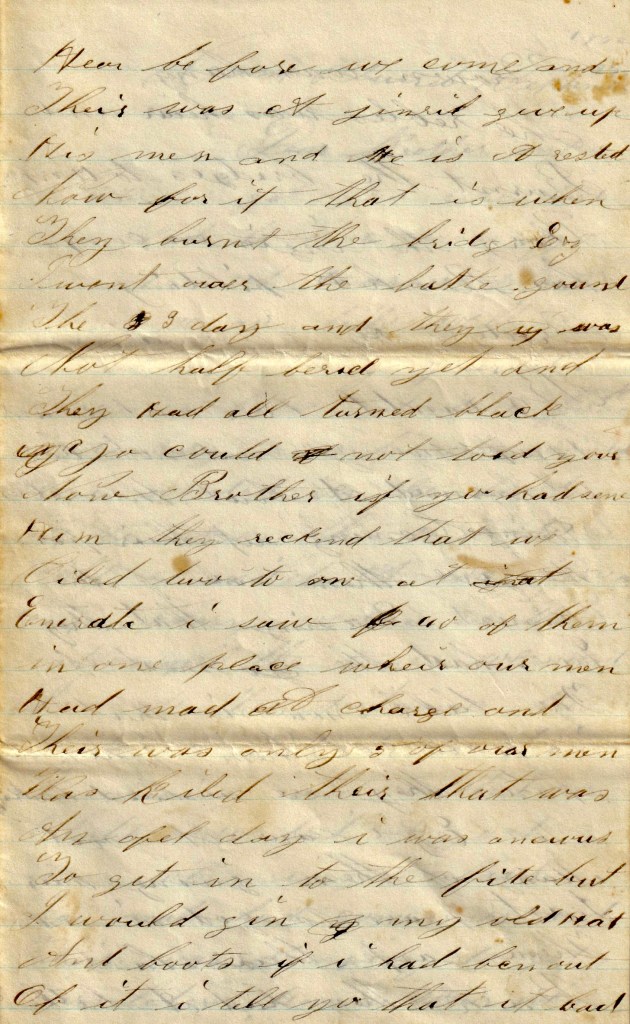 Hear be fore we come and
Theis was A jinril give up
His men and He is A rested
Now for it that is when
They burnt the bridg
I went over the battle gound
The 3 day and they was
Not half beried yet and
They Had all turned black
yo could not told your
Now Brother if yo had sene
Him they reckend that w
Ciled two to on at
i saw 40 of them
in one place wheir our men
Had mad A charge and
Their was only 3 of our men
Was kiled their that was
An ofel day i was anexus
To get in to the fite but
I would giv my old Hat
And boots if i had ben out
Of it i tell yo that it bad